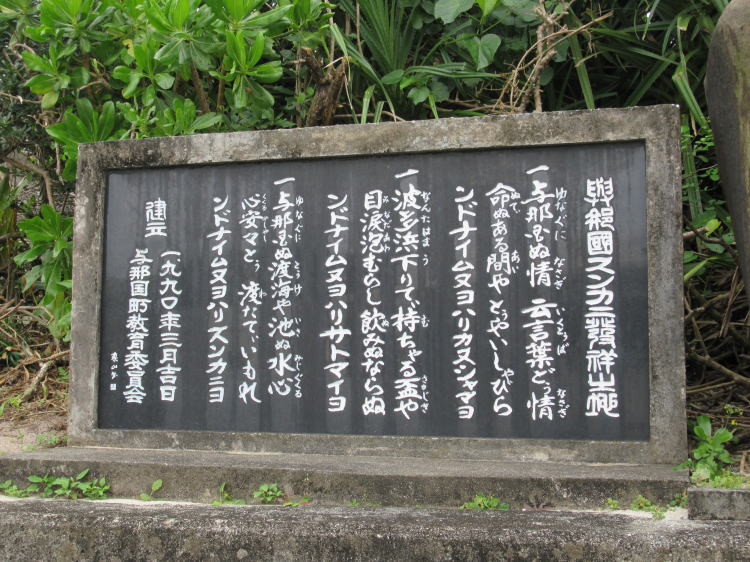 與那國スンカニ發祥之地
一、与那国ぬ情 云言葉どぅ情
命ぬある間や とぅやいしゃびら
ンドナイムヌヨハリカヌシャマヨ
一、波多浜下りてぃ持ちゃる盃や
目涙泡むらし飲みぬならぬ
ンドナイムヌヨハリサトマイヨ
一、与那国ぬ渡海や池ぬ水心
心安々とぅ渡たてぃいもれ
ンドナイムヌヨハリスンカニヨ
建立 一九九〇年三月吉日
与那国町教育委員会